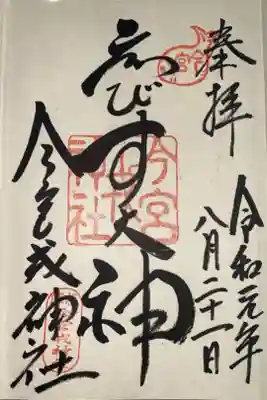 奉拝
令和元年
八月二十一日
ゑびす大神
今宮戎神社